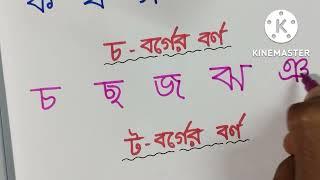 চ-বর্গের বর্ণ
চ ছ জ ঝ ঞ
ট-বর্গের বর্ণ
KINEMASTER